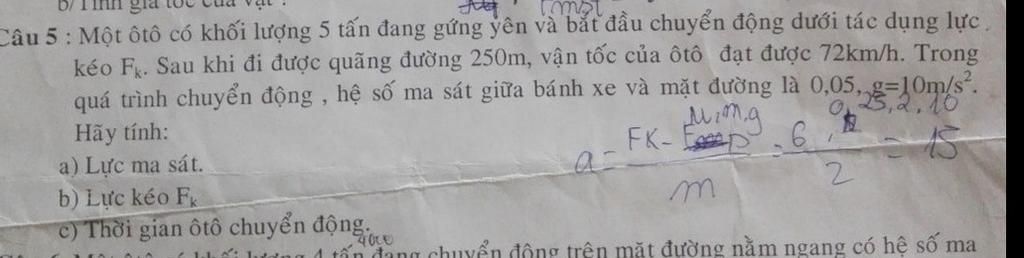 b/ Tính gia tốc của vật .
Câu 5 : Một ôtô có khối lượng 5 tấn đang gứng yên và bắt đầu chuyển động dưới tác dụng lực
kéo Fk. Sau khi đi được quãng đường 250m, vận tốc của ôtô đạt được 72km/h. Trong
quá trình chuyển động , hệ số ma sát giữa bánh xe và mặt đường là 0,05, g=10m/s².
Hãy tính:
a) Lực ma sát.
b) Lực kéo Fk
c) Thời gian ôtô chuyển động.
0,25.2.10
a = FK - μ.m.g = 6 = 15
m 2
4000
4 tấn đang chuyển động trên mặt đường nằm ngang có hệ số ma